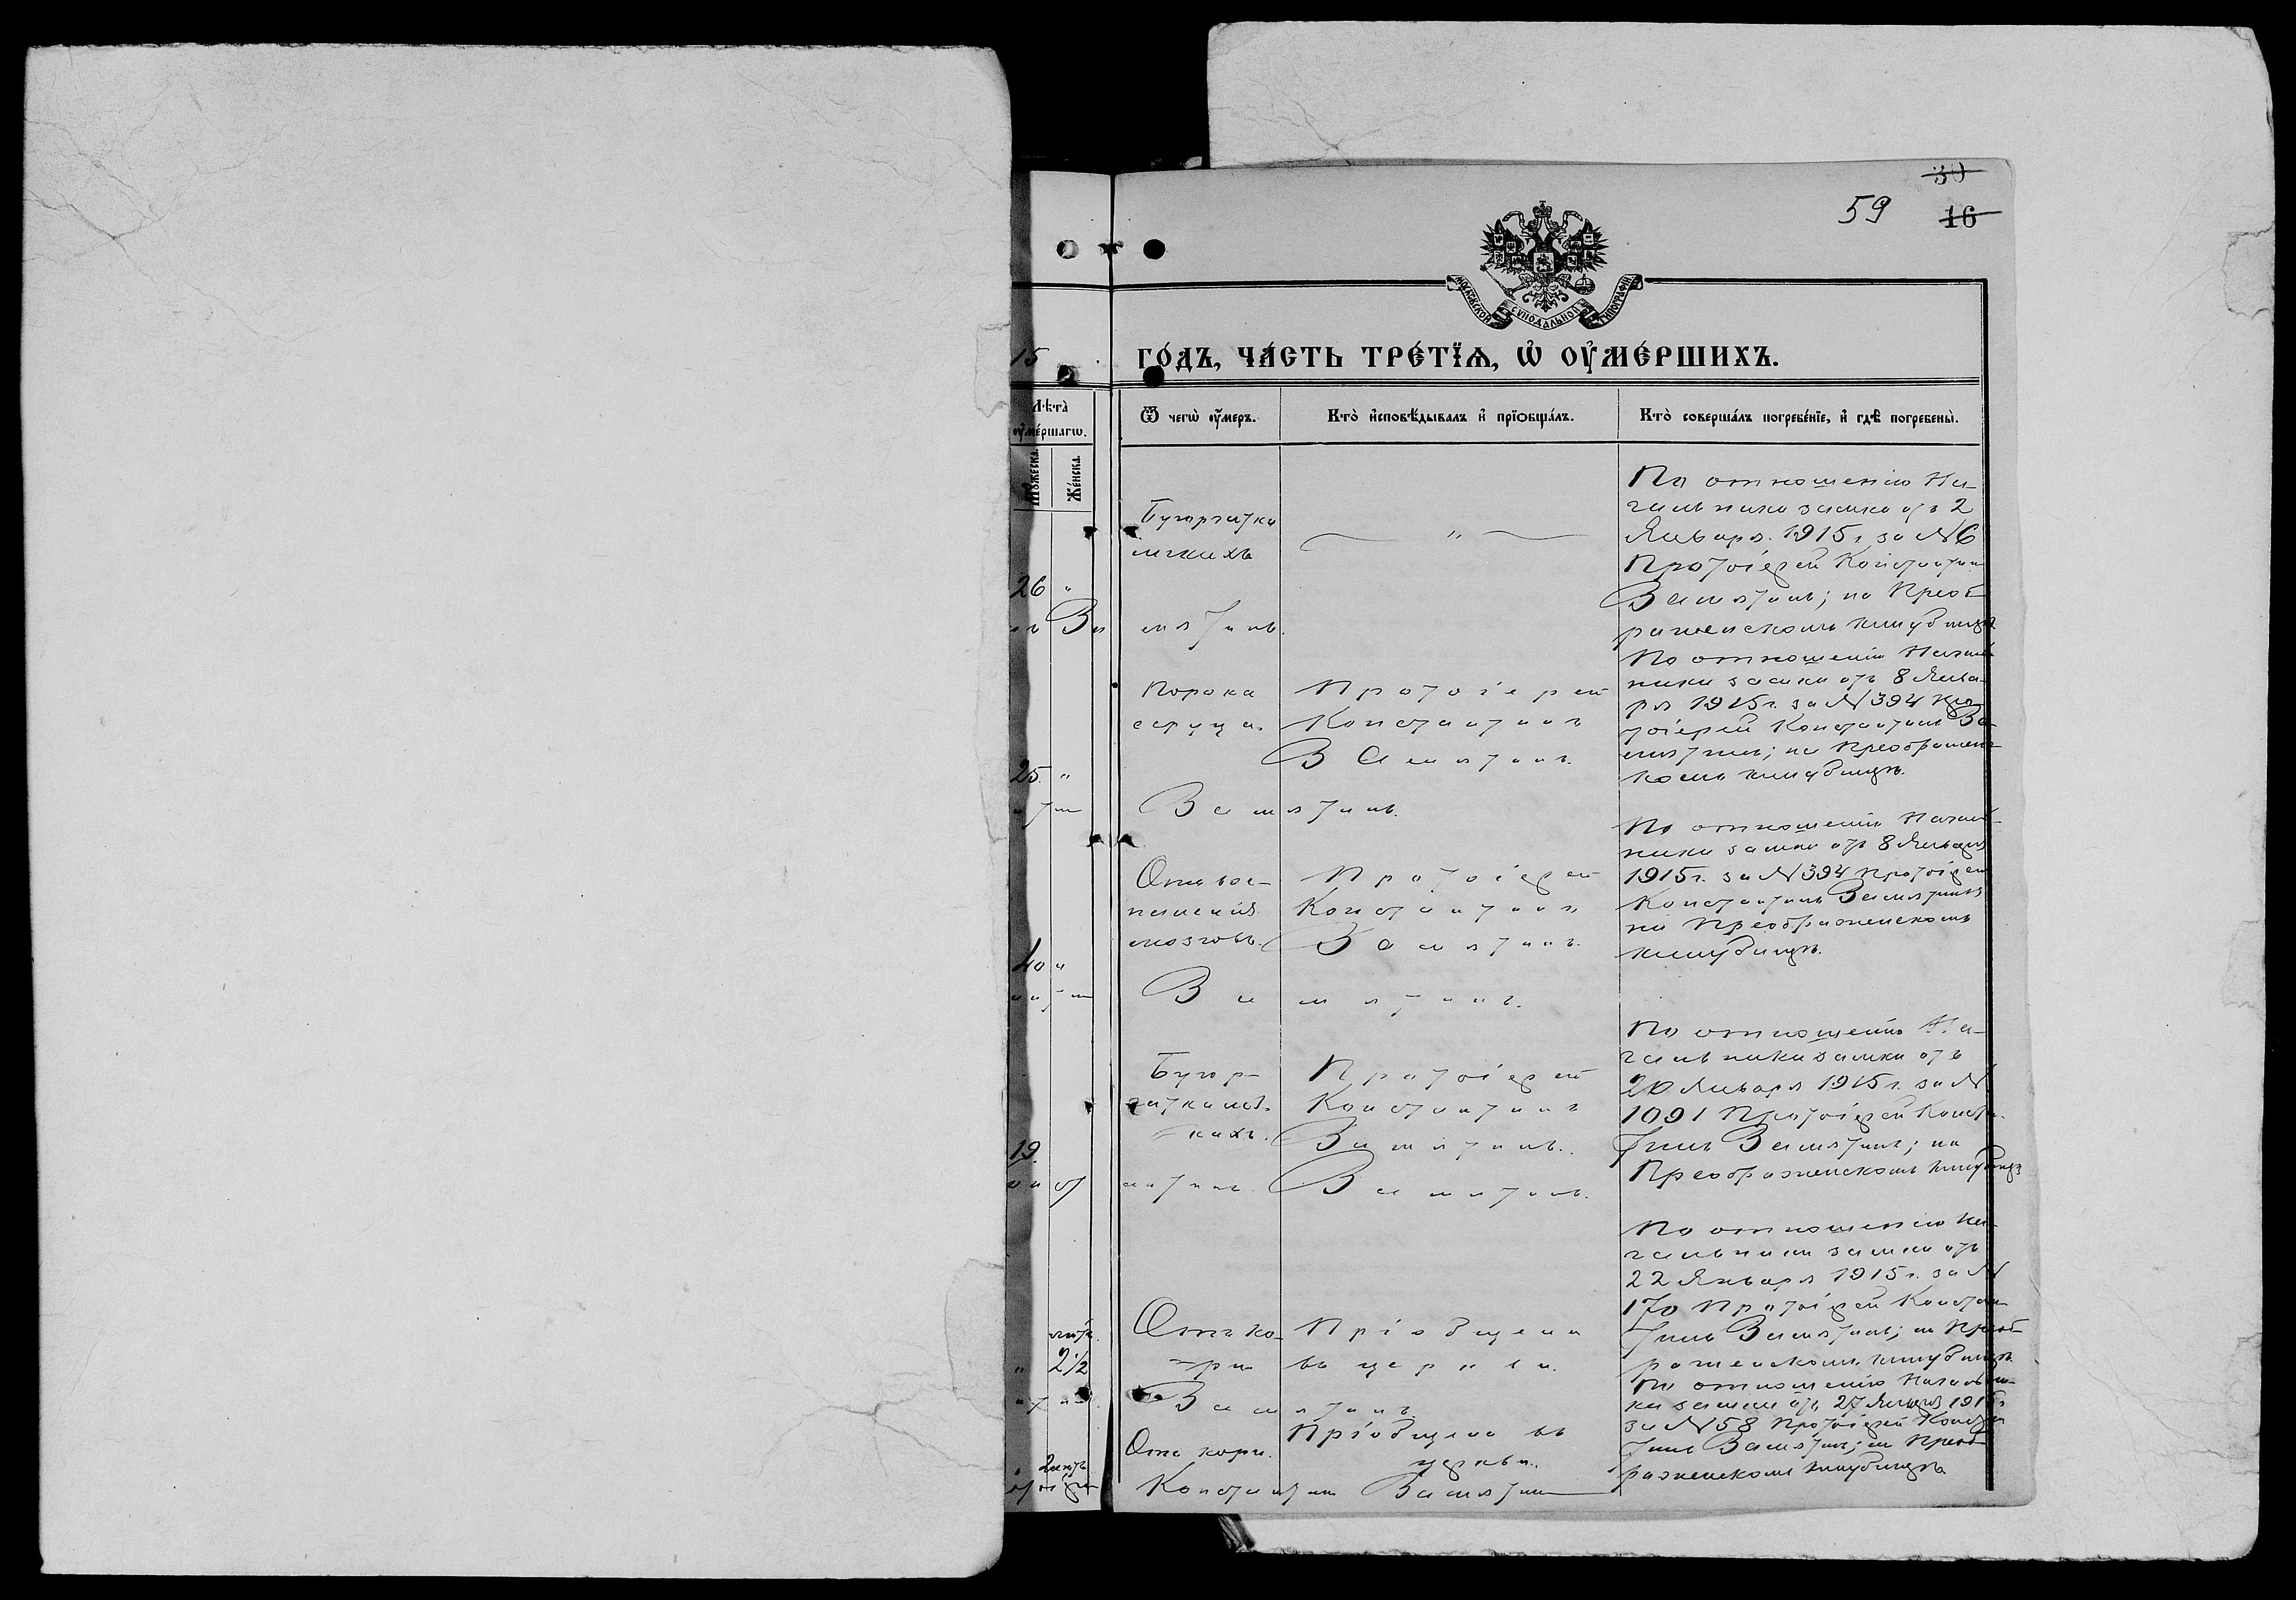 30
59 16
МОСКОВСКОЙ СѴНОДАЛЬНОЙ ТИПОГРАФІИ
15 го́дъ, ча́сть тре́тїѧ, ѡ҆ ᲂу҆ме́ршихъ.
Лѣта̀ ᲂу҆ме́ршагѡ.
Мꙋ́жеска.
Же́нска.
Ѿ чегѡ̀ ᲂу҆́меръ.
Кто̀ и҆сповѣ́дывалъ и҆ прїѡбща́лъ.
Кто̀ соверша́лъ погребе́нїе, и҆ гдѣ̀ погребены̀.
26 "
Бугорчатка
легкихъ
— " —
По отношенію На-
чальника замка отъ 2
Января 1915 г. за № 6
Протоіерей Константин
Замятинъ; на Преоб
раженскомъ кладбищѣ
За мятинъ.
25. "
Порока
сердца.
Протоіерей
Константинъ
Замятинъ.
По отношенію Началь
ника замка отъ 8 Янва-
ря 1915 г. за № 394 Про
тоіерей Константинъ За-
мятинъ; на Преображенс
комъ кладбищѣ.
Замятинъ.
40 "
Отъ вос-
паленія
мозговъ.
Протоіерей
Константинъ
Замятинъ.
По отношенію Началь-
ника замка отъ 8 Января
1915 г. за № 394 Протоіерей
Константинъ Замятинъ
на Преображенскомъ
кладбищѣ.
Замятинъ.
19.
Бугор-
чатка лег-
кихъ.
Протоіерей
Константинъ
Замятинъ.
По отношенію На-
чальника замка отъ
20 Января 1915 г. за №
1091 Протоіерей Конста-
тинъ Замятинъ; на
Преображенскомъ кладбищѣ
Замятинъ.
" 2 1/2
Отъ ко-
ри
Пріобщена
въ церкви.
По отношенію На-
чальника замка отъ
22 Января 1915 г. за №
170 Протоіерей Констан
тинъ Замятинъ; на Преоб
раженскомъ кладбищѣ.
Замятинъ
Отъ кори.
Пріобщена въ
церкви.
По отношенію Начальни-
ка замка отъ 27 Января 1915 г
за № 58 Протоіерей Констан
тинъ Замятинъ; на Преоб
раженскомъ кладбищѣ
Константинъ Замятинъ